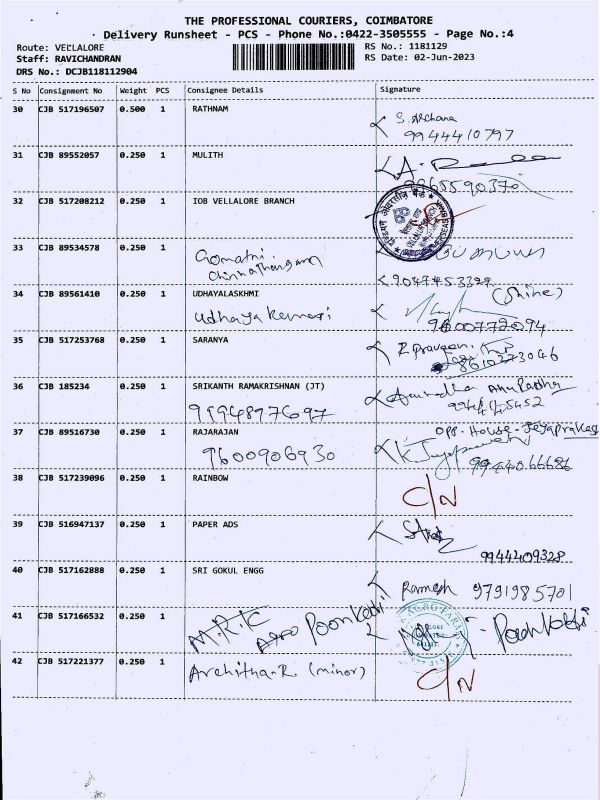 THE PROFESSIONAL COURIERS, COIMBATORE
Delivery Runsheet - PCS - Phone No.:0422-3505555 - Page No.:4
Route: VELLALORE RS No.: 1181129
Staff: RAVICHANDRAN RS Date: 02-Jun-2023
DRS No.: DCJB118112904
S No Consignment No Weight PCS Consignee Details Signature
30 CJB 517196507 0.500 1 RATHNAM
S. Archana
9944410797
31 CJB 89552057 0.250 1 MULITH
9965590370
32 CJB 517208212 0.250 1 IOB VELLALORE BRANCH
33 CJB 89534578 0.250 1
Gomathi
Chinnathangam
9047453329
34 CJB 89561410 0.250 1 UDHAYALASKHMI (Shine)
Udhaya kumari
9600772094
35 CJB 517253768 0.250 1 SARANYA
R Praveen
8610273046
36 CJB 185234 0.250 1 SRIKANTH RAMAKRISHNAN (JT)
Anuradha
9994897697
37 CJB 89516730 0.250 1 RAJARAJAN
OPP. House - Jeyaprakas
9600906930
9944066686
38 CJB 517239096 0.250 1 RAINBOW
C/N
39 CJB 516947137 0.250 1 PAPER ADS
9944409328
40 CJB 517162888 0.250 1 SRI GOKUL ENGG
Ramesh 9791985701
41 CJB 517166532 0.250 1
M.R.K Agro Poonkodi
42 CJB 517221377 0.250 1
Architha.R (minor)
C/N